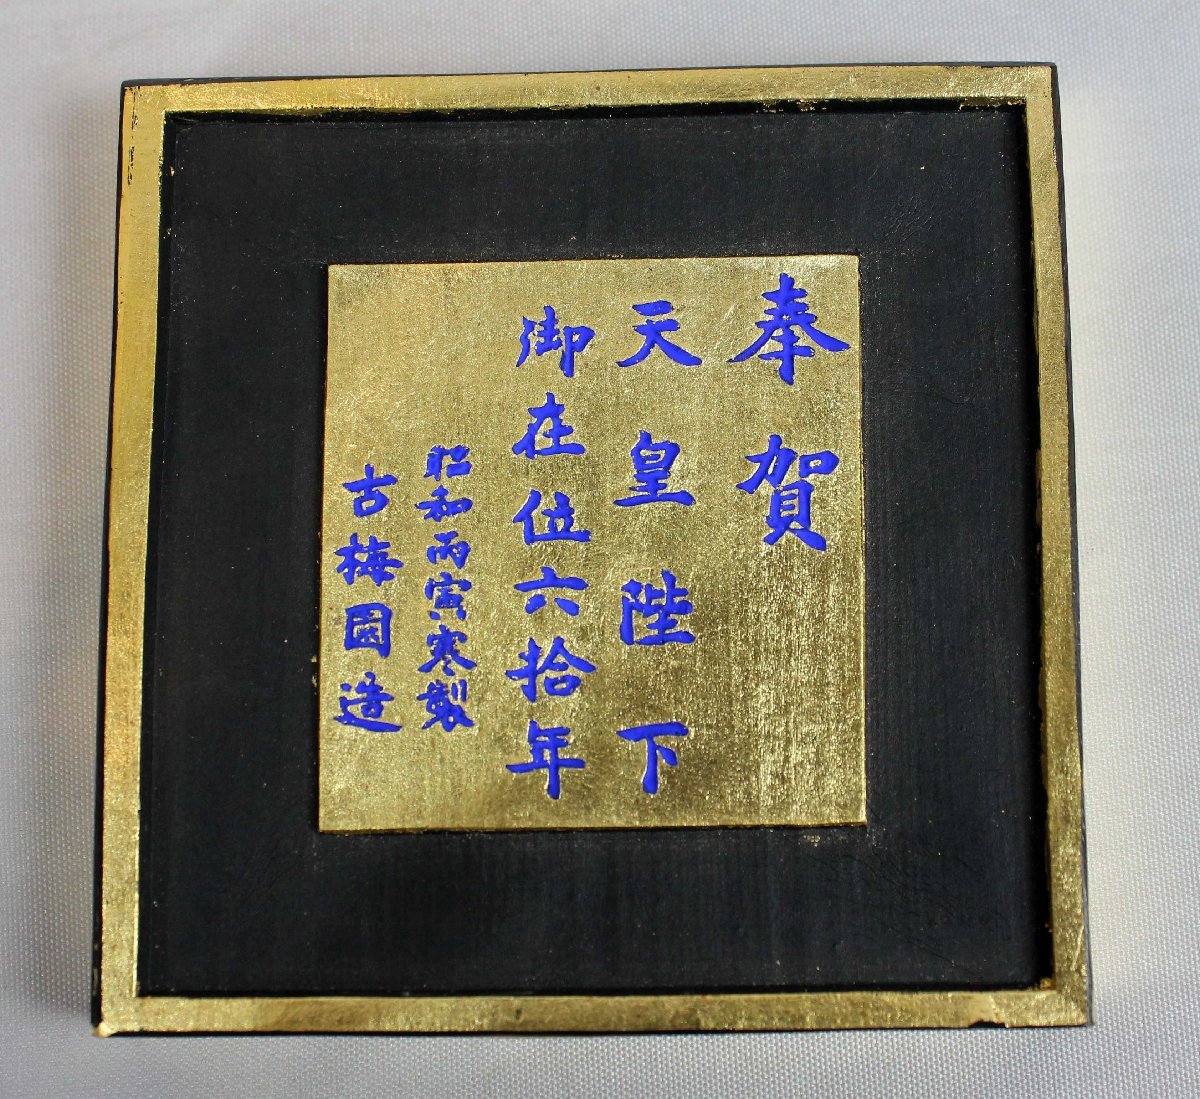 奉賀
天皇陛下
御在位六拾年
昭和丙寅寒製
古梅園造